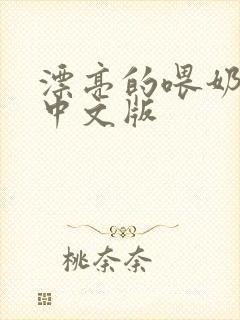 漂亮的喂奶
中文版
桃奈奈